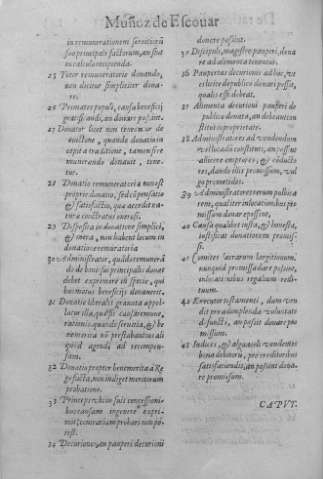 Muñoz de Escouar
in remunerationem seruitiorū
suo principali factorum, an sta
tu calculo reipenda.
25 Tutor remuneratorie donando,
non dicitur simpliciter dona-
re.
26 Primates populi, causa beneficij
gratificandi, an donare possint.
27 Donator licet non teneatur de
euictione, quando donatio in
cepit a traditione, tamen si re
munerando donauit, tene-
tur.
28 Donatio remuneratoria non est
proprie donatio, sed cōpensatio
& satisfactio, quæ accedit na-
turæ contractus onerosi.
29 Disposita in donatione simplici,
& mera, non habent locum in
donatione remuneratoria
30 Administrator, qualiter remunerā
do de bonis sui principalis donat
debet exprimere in specie, qui
bus meritus beneficijs donauerit.
31 Donatio liberalis
lectur illa, quæ
rationis, quando seruitia, & be
nemerita nō præstabantur ali
quid agendi ad recompen-
sam.
32 Donatio propter benemerita à Re
ge facta, non indiget meritorum
probatione.
33 Princeps vbi in suis concessioni-
bus causam ingenere expri-
mit, contrarium probari non po-
test.
34 Decuriones an pauperi decurioni
donare possint.
35 Discipuli, magistro pauperi, dona
re ad alimenta tenentur.
36 Paupertas decurionis ad hoc, vt
ei licite de publico donari possit,
qualis esse debeat.
37 Alimenta decurioni pauperi de
publico donata, an debeant con
stitui cum proprietate.
38 Administratores ad vendendum
vel locandū constituti, an possint
allicere emptores, & cōducto
res, dando illis promissum, vul
go prometidos.
39 Administratores rerum publica
rum, qualiter in locationibus pro
missum donare possint.
40 Causa qualibet iusta, & honesta,
iustificat donationem promis-
si.
41 Comites sacrarum largitionum,
nunquid promissa dare possint,
in locationibus regalium vecti-
ium.
42 Executor testamenti, dum ven
dit pro adimplenda voluntate
defuncti, an possit donare pro
missum.
43 Iudices, & alguazeli vendentes
bona debitoris, pro creditoribus
satisfaciendis, an possint dona-
re promissum.
CAPVT.